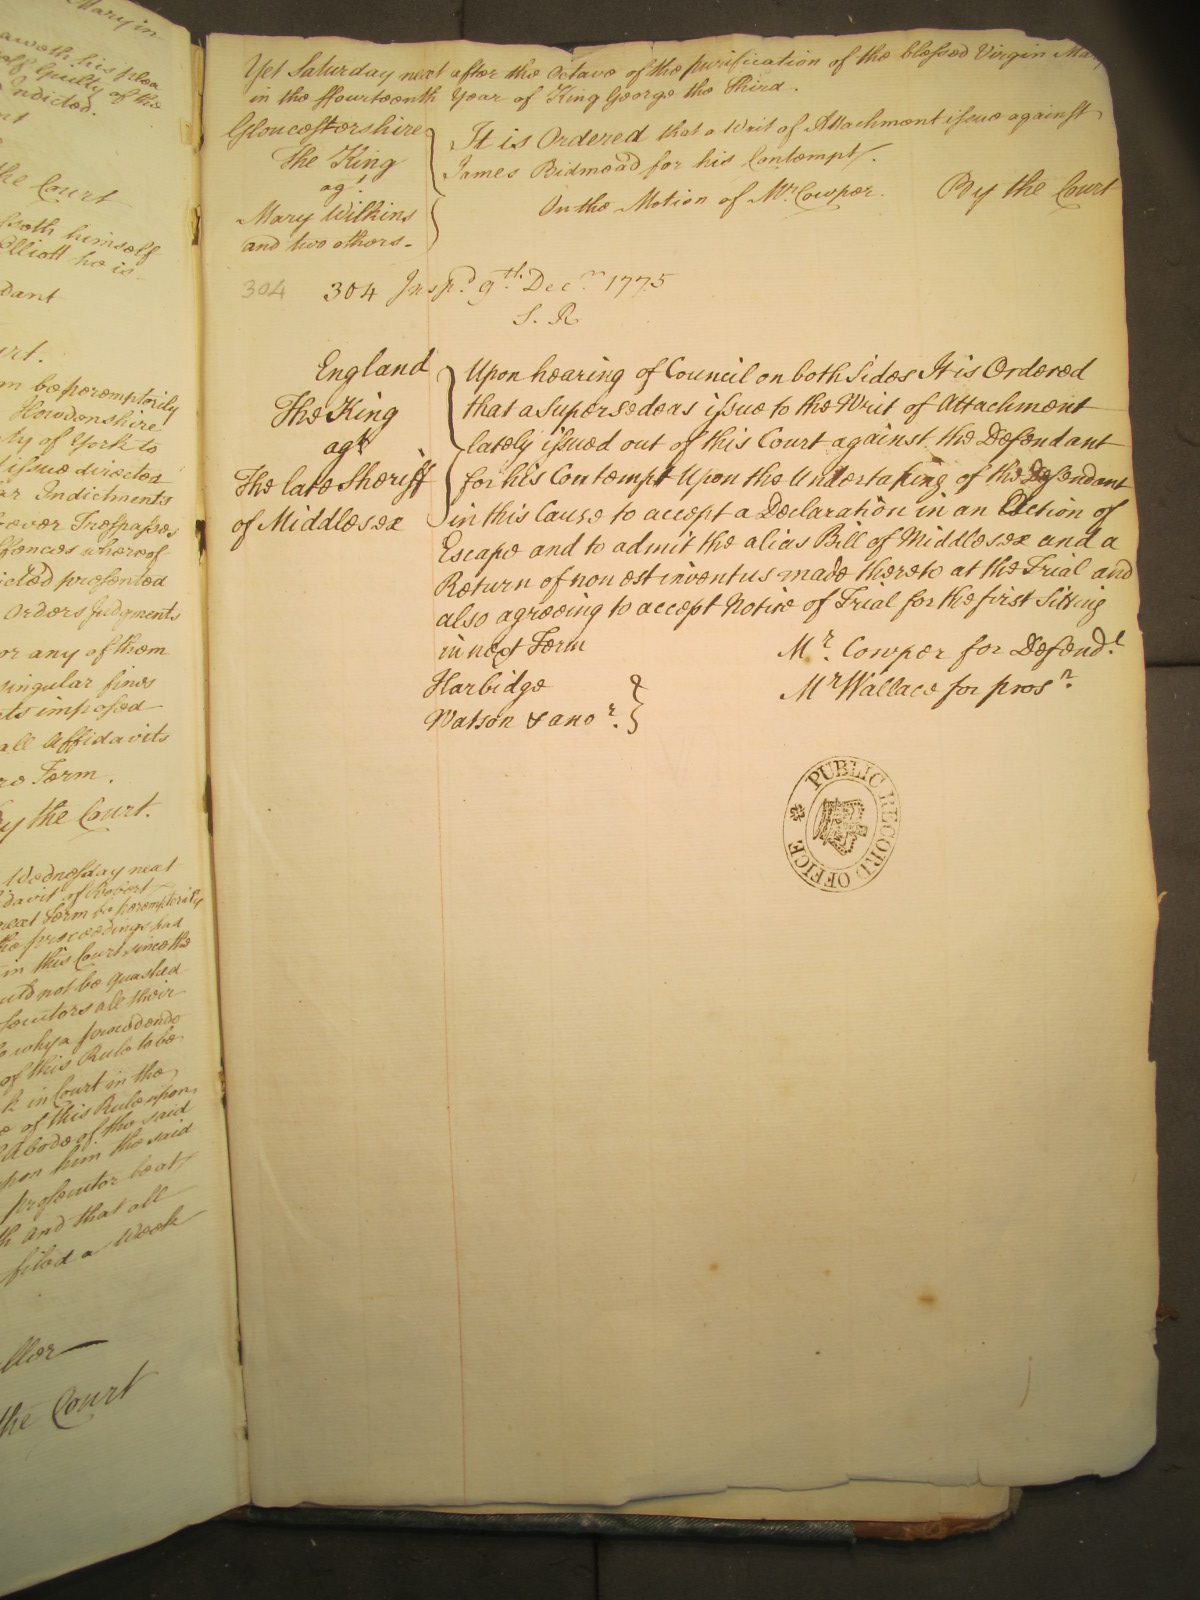 Mary in
aweth his plea
self Guilty of the
Indicted.
the Court
himself
Elliott he is
dant
be peremptorily
Howdenshire
ty of York to
issue directed
Indictments
ever Trespasses
ffences whereof
icted presented
Orders Judgments
or any of them
singular fines
imposed
all Affidavits
Term.
By the Court.
Wednesday next
davit of Robert
next Term be peremptorily
the proceedings had
in this Court since the
not be quashed
secutors all their
why a procedendo
of this Rule to be
in Court in the
of this Rule upon
Abode of the said
upon him the said
prosecutor be at
and that all
filed a Week
the Court
Yet Saturday next after the Octave of the purification of the blessed Virgin Mary
in the ffourteenth Year of King George the Third.
Gloucestershire
The King
agt.
Mary Wilkins
and two others.
It is Ordered that a Writ of Attachment issue against
James Bidmead for his Contempt.
On the Motion of Mr. Cowper. By the Court
304 304 Inspd. 9th. Decr. 1775
S. R
England
The King
agt
The late Sheriff
of Middlesex
Upon hearing of Council on both Sides It is Ordered
that a Supersedeas issue to the Writ of Attachment
lately issued out of this Court against the Defendant
for his Contempt Upon the Undertaking of the Defendant
in this Cause to accept a Declaration in an Action of
Escape and to admit the alias Bill of Middlesex and a
Return of non est inventus made thereto at the Trial and
also agreeing to accept Notice of Trial for the first Sitting
in next Term
Mr. Cowper for Defendt.
Harbidge
Mr Wallace for prosr.
Watson & anor.
PUBLIC RECORD OFFICE